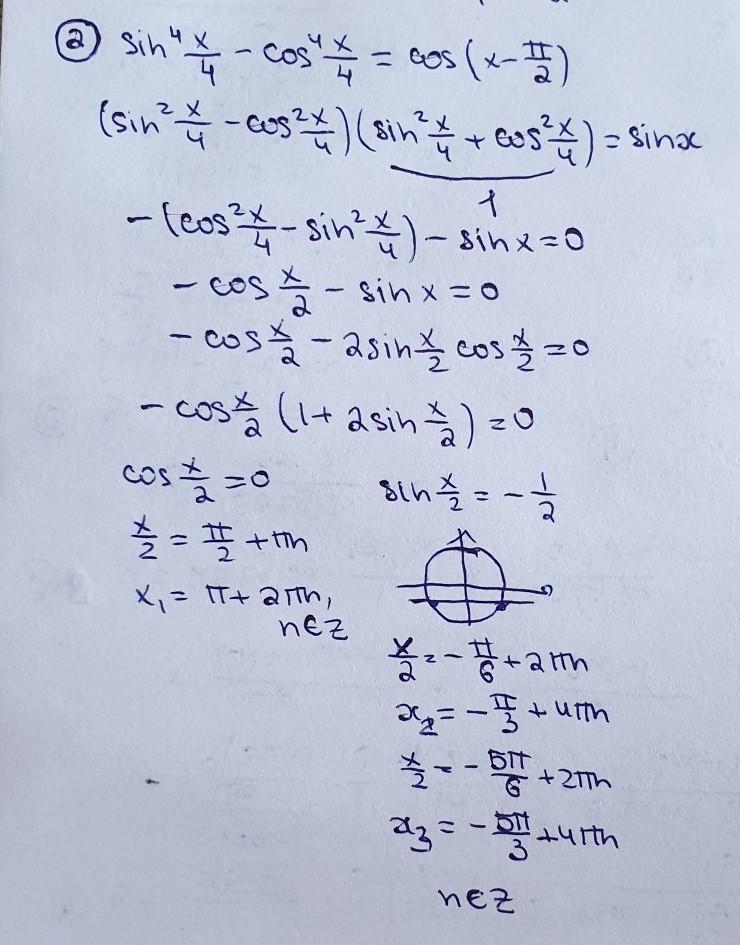 ② sin⁴ x/4 - cos⁴ x/4 = cos (x - π/2)
(sin² x/4 - cos² x/4) (sin² x/4 + cos² x/4) = sin x
1
- (cos² x/4 - sin² x/4) - sin x = 0
- cos x/2 - sin x = 0
- cos x/2 - 2 sin x/2 cos x/2 = 0
- cos x/2 (1 + 2 sin x/2) = 0
cos x/2 = 0
x/2 = π/2 + πn
x₁ = π + 2πn,
n∈Z
sin x/2 = - 1/2
x/2 = - π/6 + 2πn
x₂ = - π/3 + 4πn
x/2 = - 5π/6 + 2πn
x₃ = - 5π/3 + 4πn
n∈Z